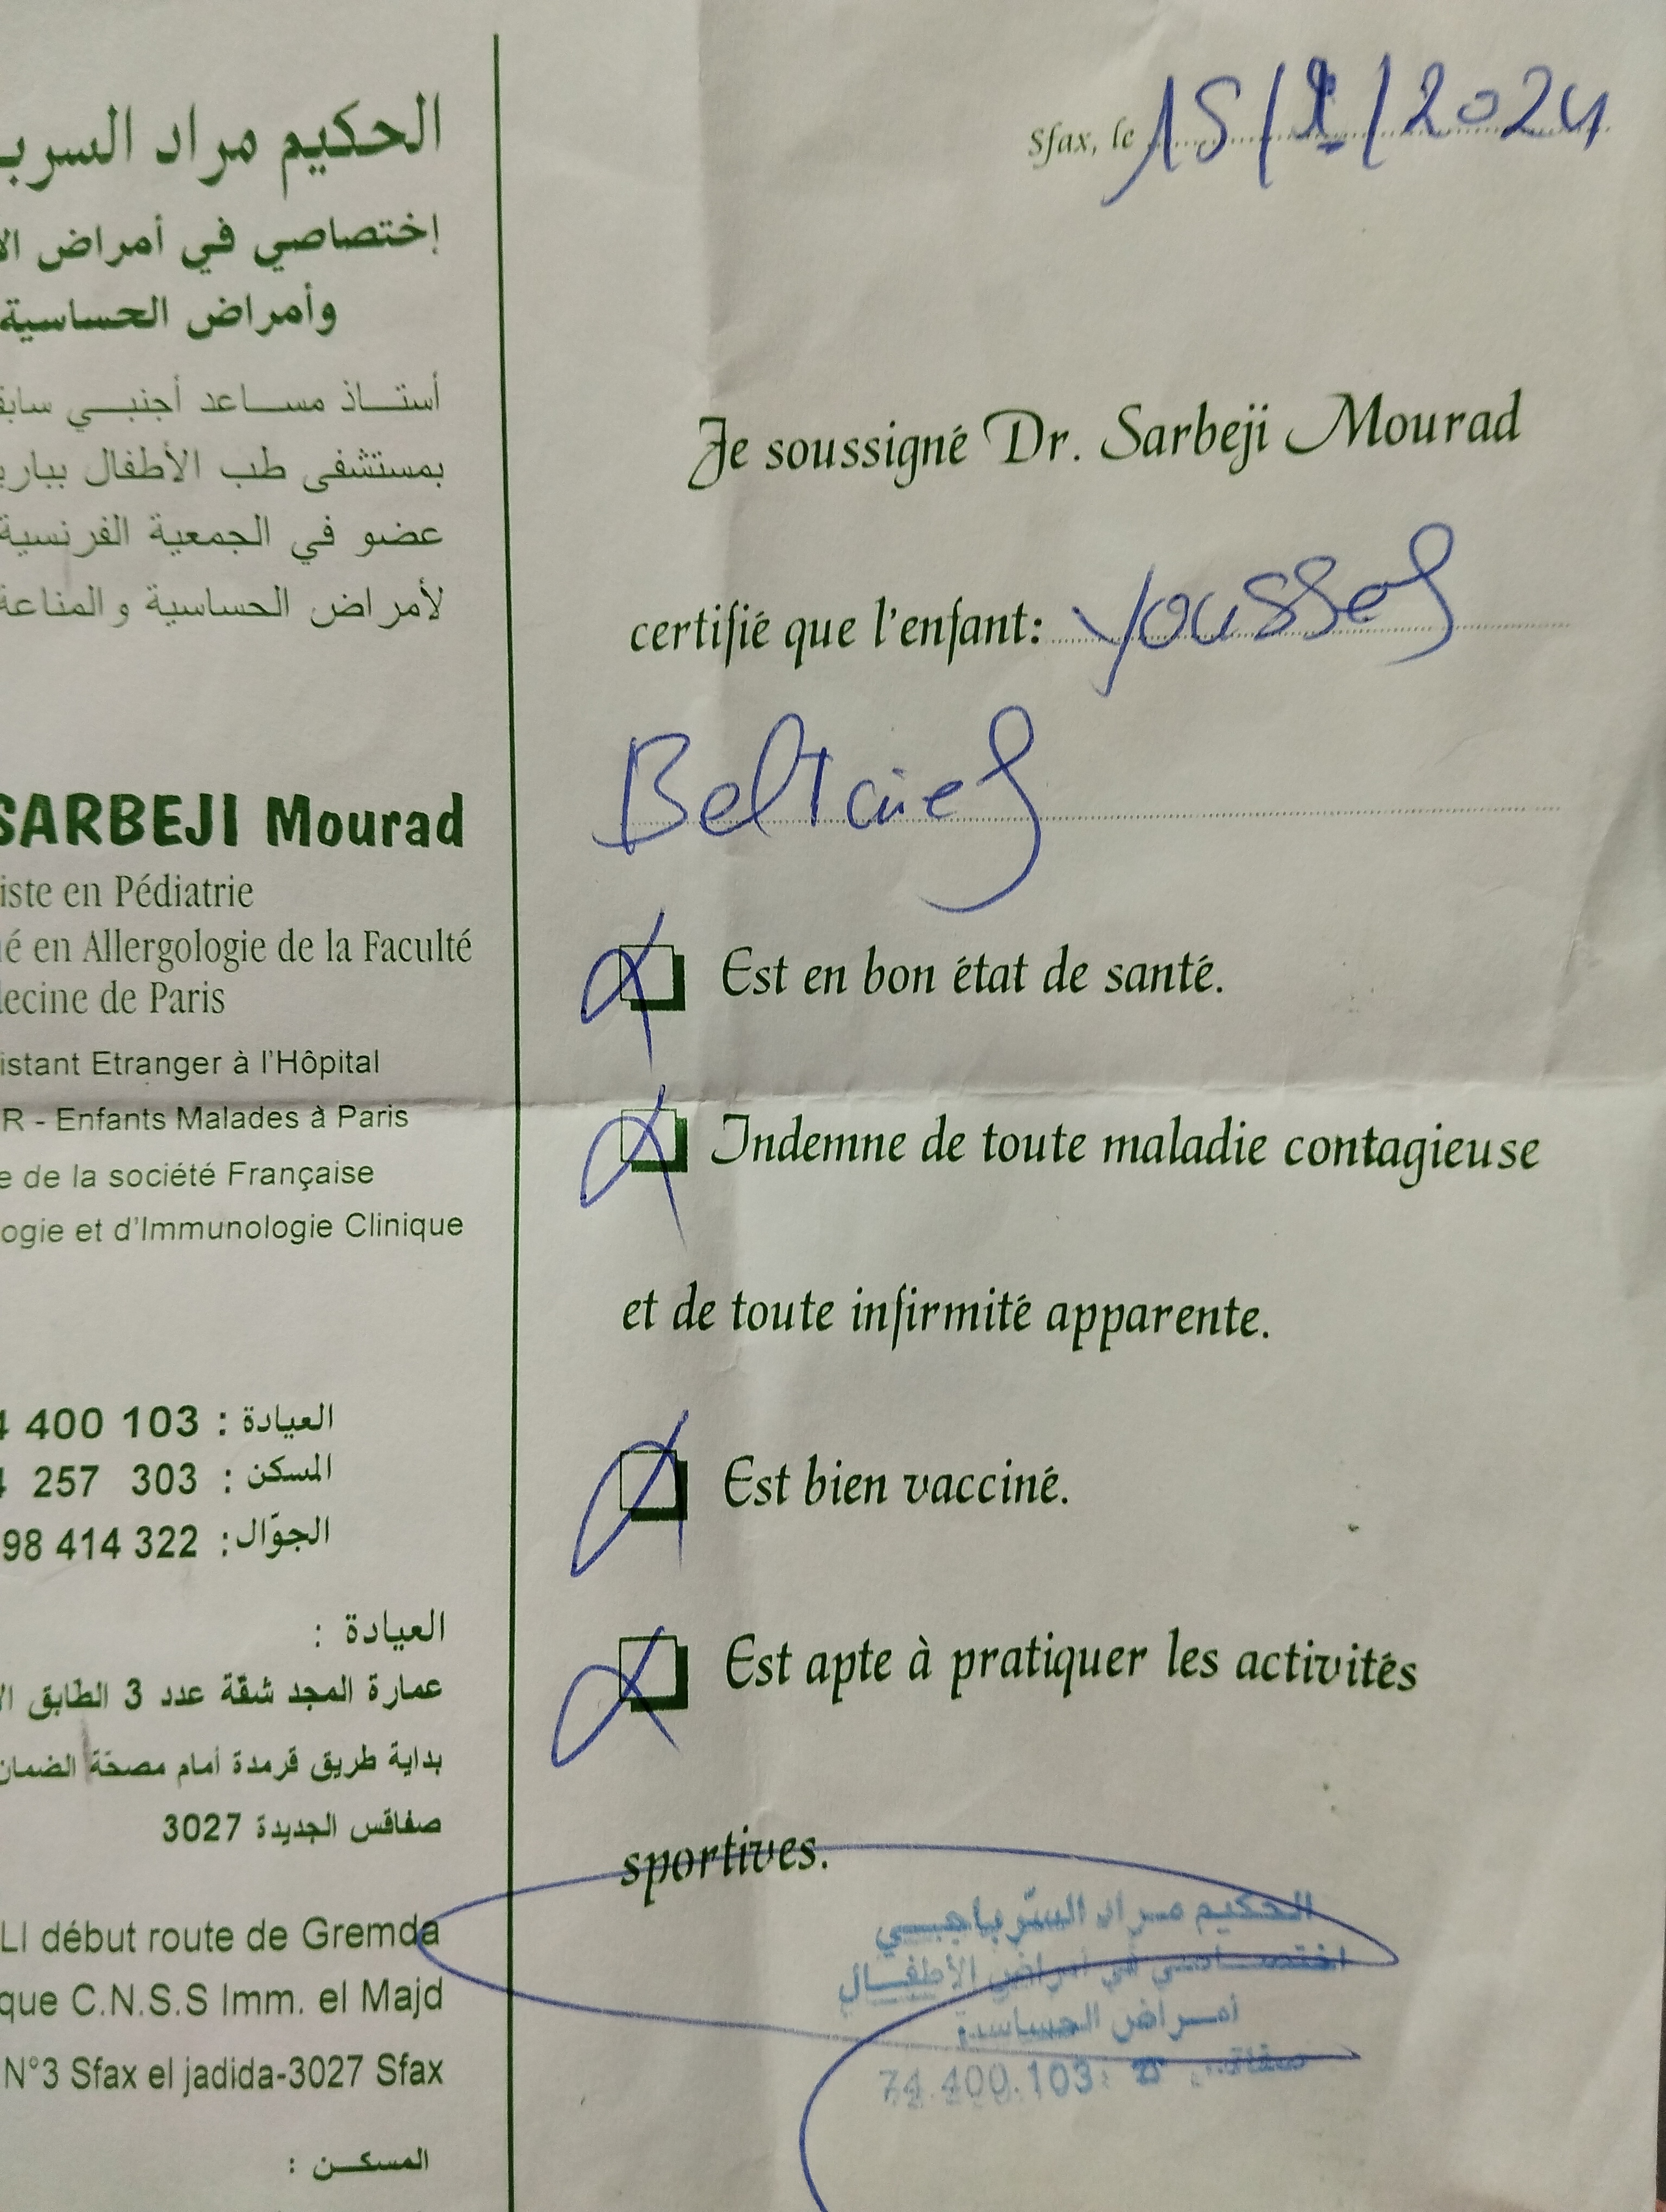 الحكيم مراد السرب
إختصاصي في أمراض الأ
وأمراض الحساسية
أستـــاذ مســـاعد أجنبـــي سابق
بمستشفى طب الأطفال بباري
عضو في الجمعية الفرنسية
لأمراض الحساسية و المناعة
SARBEJI Mourad
iste en Pédiatrie
é en Allergologie de la Faculté
decine de Paris
istant Etranger à l'Hôpital
R - Enfants Malades à Paris
e de la société Française
ogie et d'Immunologie Clinique
العيادة : 4 400 103
المسكن : 4 257 303
الجوّال: 98 414 322
العيادة :
عمارة المجد شقّة عدد 3 الطابق الأ
بداية طريق قرمدة أمام مصحّة الضمان
صفاقس الجديدة 3027
LI début route de Gremda
que C.N.S.S Imm. el Majd
N°3 Sfax el jadida-3027 Sfax
المسكـــن :
Sfax, le 15/ /2024
Je soussigné Dr. Sarbeji Mourad
certifié que l'enfant: Youssef
Beltaief
Est en bon état de santé.
Indemne de toute maladie contagieuse
et de toute infirmité apparente.
Est bien vacciné.
Est apte à pratiquer les activités
sportives.
الحكيم مـراد السّرباجـــي
اختصـــاصي في أمراض الأطفـــال
أمـــراض الحساسية
74.400.103 :☎ صفاقس